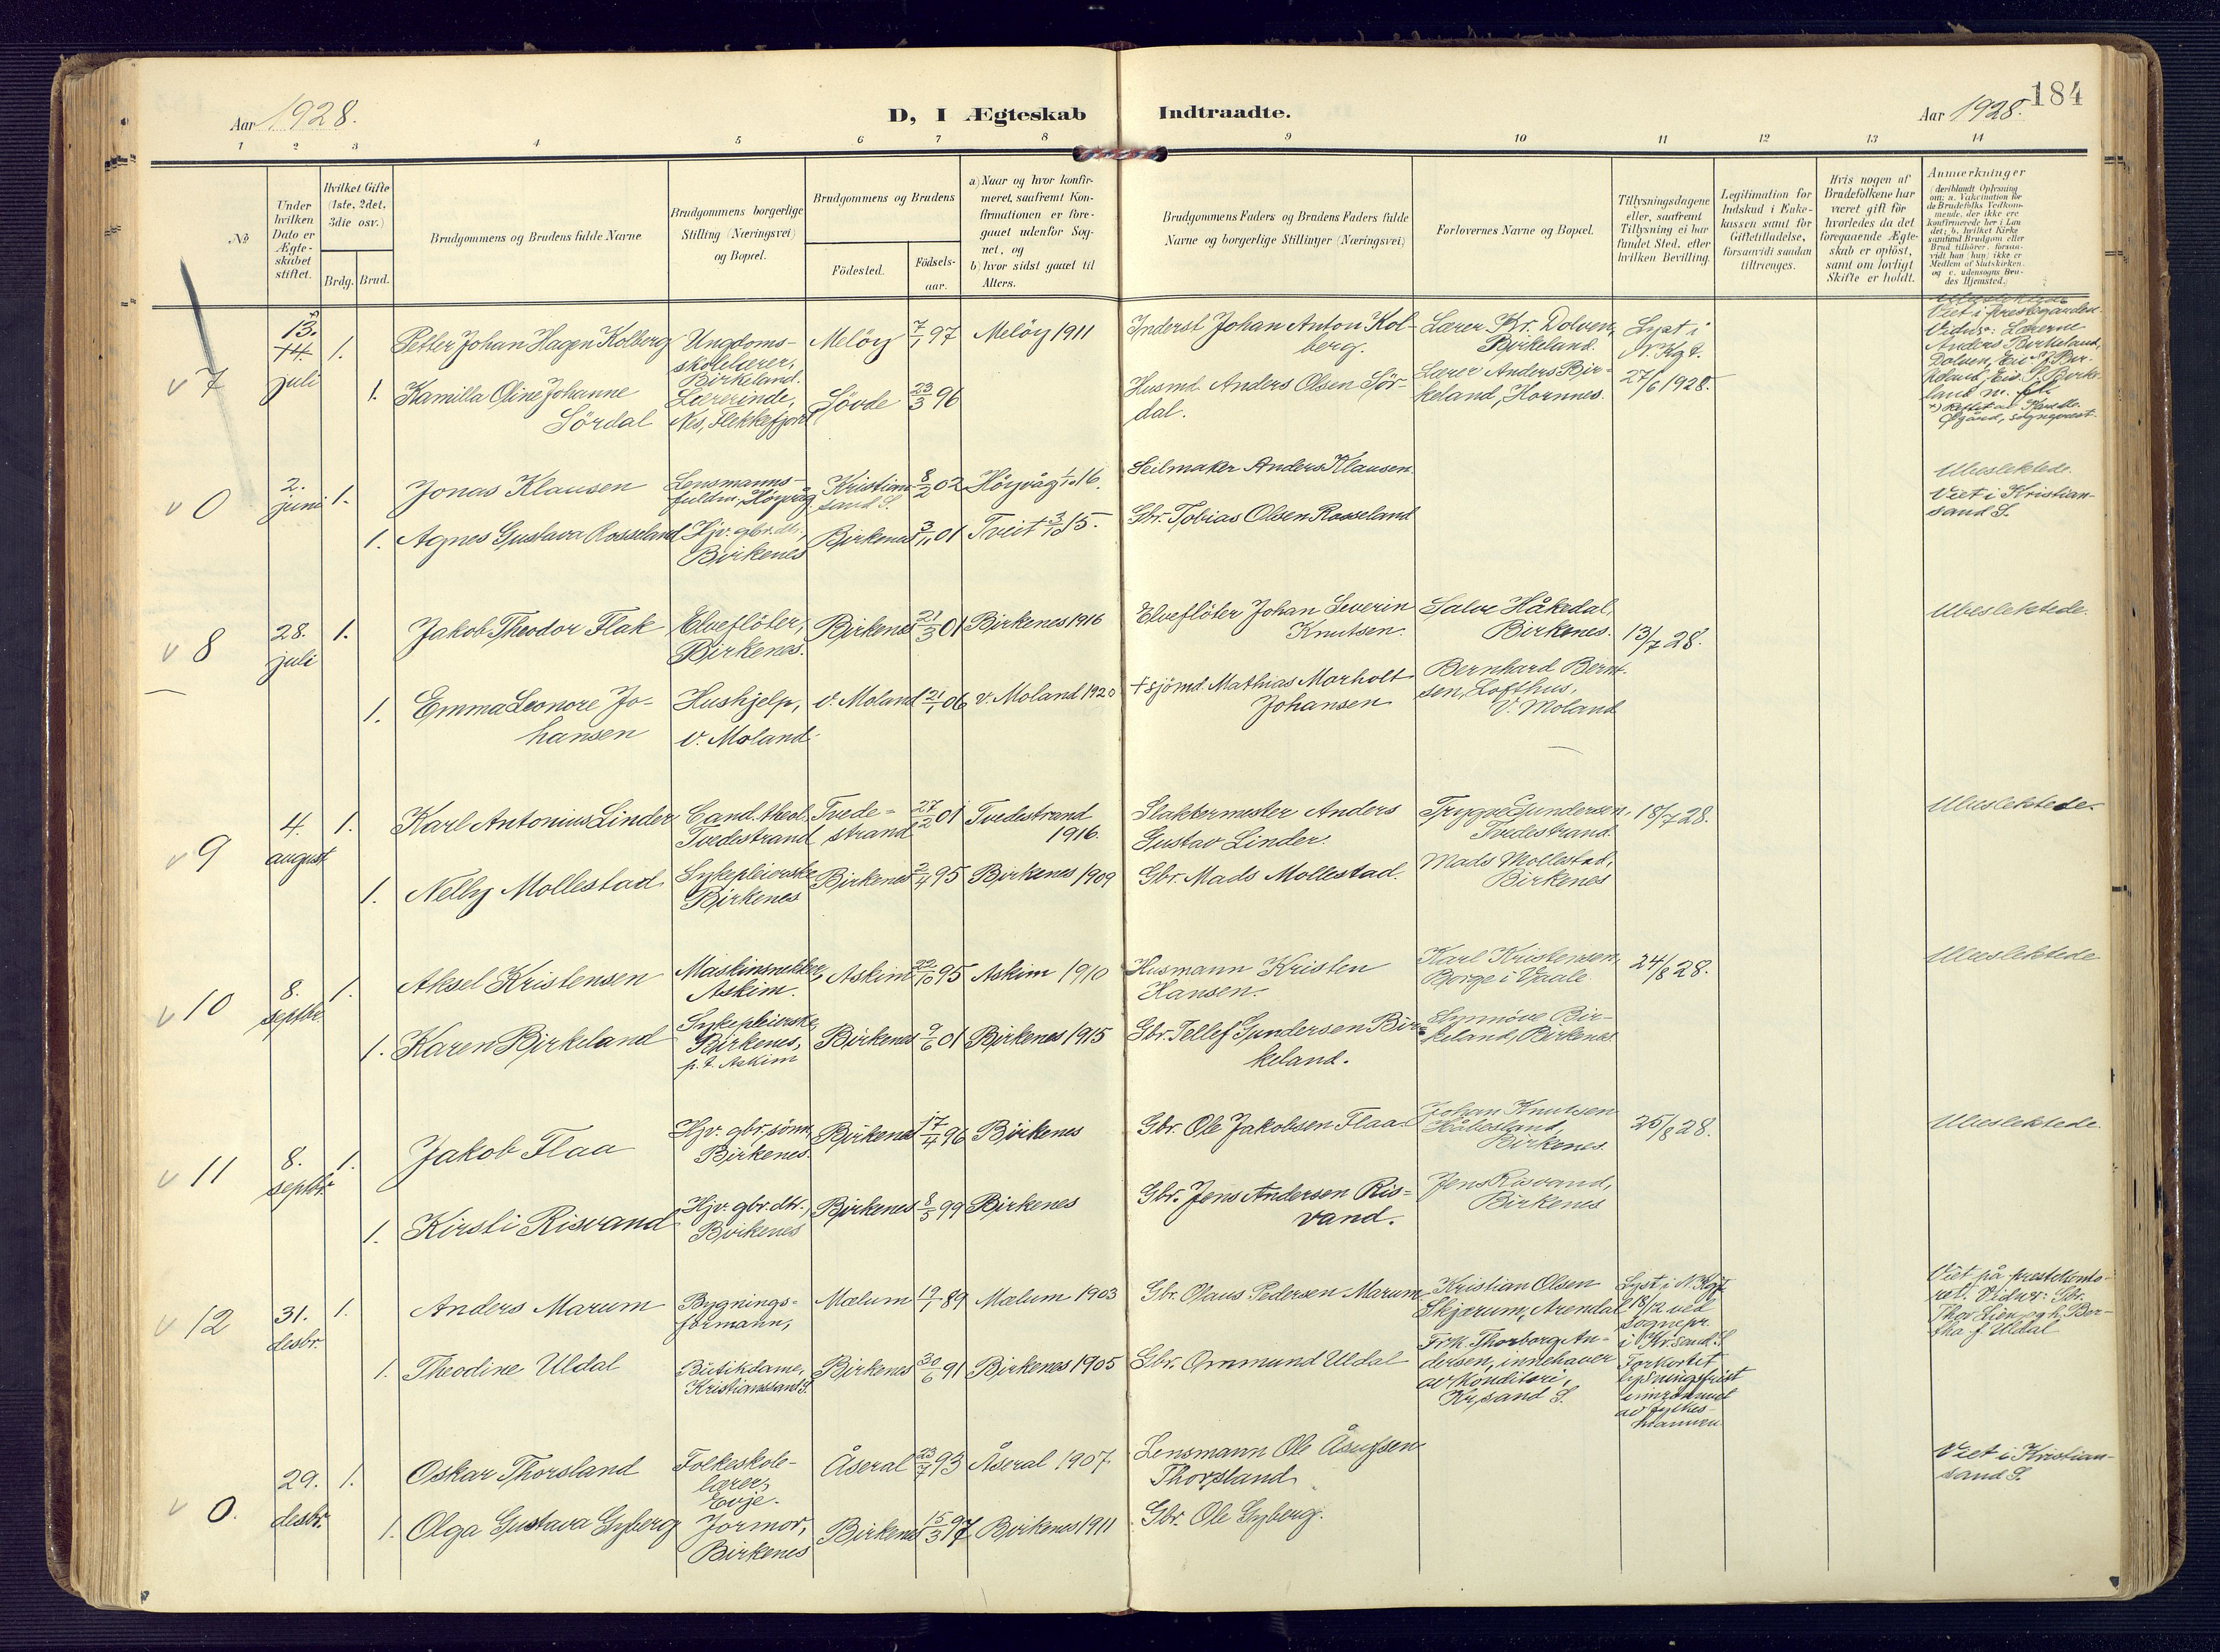 184
Aar 1928.
D, I Ægteskab Indtraadte.
Aar 1928.
1 2 3 4 5 6 7 8 9 10 11 12 13 14
No
Under
hvilken
Dato er
Ægte-
skabet
stiftet.
Hvilket Gifte
(1ste, 2det,
3die osv.)
Brdg. Brud.
Brudgommens og Brudens fulde Navne
Brudgommens borgerlige
Stilling (Næringsvei)
og Bopæl.
Brudgommens og Brudens
Fødested.
Fødsels-
aar.
a) Naar og hvor konfir-
meret, saafremt Kon-
firmationen er fore-
gaaet udenfor Sog-
net, og
b) hvor sidst gaaet til
Alters.
Brudgommens Faders og Brudens Faders fulde
Navne og borgerlige Stillinger (Næringsvei)
Forlovernes Navne og Bopæl.
Tillysningsdagene
eller, saafremt
Tillysning ei har
fundet Sted, efter
hvilken Bevilling.
Legitimation for
Indskud i Enke-
kassen samt for
Giftetilladelse,
forsaavidt saadan
tiltrænges.
Hvis nogen af
Brudefolkene har
været gift før
hvorledes da det
foregaaende Ægte-
skab er opløst,
samt om lovligt
Skifte er holdt.
Anmerkninger
(deriblandt Oplysning
om: a. Vakcination for
de Brudefolks Vedkom-
mende, der ikke ere
konfirmerede her i Lan
det; b. hvilket Kirke
samfund Brudgom eller
Brud tilhører, forsaa-
vidt han (hun) ikke er
Medlem af Statskirken,
og c. udensogns Bru-
des Hjemsted.)
v 7
13.
14.
juli
1.
Petter Johan Hagen Kolberg
Ungdoms-
skolelærer,
Birkeland.
Meløy
7/1 97
Meløy 1911
Inderst Johan Anton Kol-
berg.
Lærer Kr. Dolven,
Birkeland.
Lyst i
N. Kgt.
27/6 1928.
Viet i prestegarden.
Vidner: Lærerne
Anders Birkeland,
Dolven,
1.
Kamilla Oline Johanne
Sördal
Lærerinde,
Nes, Flekkefjord
Sövde
23/3 96
Husmd. Anders Olsen Sör-
dal.
Lærer Anders Bir-
keland, Hornnes.
v 0
2.
juni
1.
Jonas Klausen
Lensmanns-
fuldm., Høvåg
Kristian-
sand S.
8/2 02
Høvåg 1/10 16.
Seilmaker Anders Klausen.
Ubeslektede.
Viet i Kristian-
sand S.
1.
Agnes Gustava Rosseland
Hjv. gbr.dtr.,
Birkenes
Birkenes
3/11 01
Tveit 3/10 15.
Gbr. Tobias Olsen Rosseland
v 8
28.
juli
1.
Jakob Theodor Flak
Elvefløter,
Birkenes.
Birkenes
21/3 01
Birkenes 1916
Elvefløter Johan Severin
Knutsen.
Salve Håkedal,
Birkenes.
13/7 28.
Ubeslektede.
1.
Emma Leonore Jo-
hansen
Hushjelp,
v. Moland.
v. Moland
21/1 06
v. Moland 1920
† sjömd. Mathias Morholt
Johansen
Bernhard Bernt-
sen, Lofthus,
V. Moland
v 9
4.
august
1.
Karl Antonius Linder
Cand. theol.
Tvedestrand
Tvede-
strand
27/12 01
Tvedestrand
1916.
Slaktermester Anders
Gustav Linder.
Trygve Gundersen,
Tvedestrand.
18/7 28.
Ubeslektede
1.
Nelly Mollestad
Sykepleierske
Birkenes
Birkenes
2/4 95
Birkenes 1909
Gbr. Mads Mollestad.
Mads Mollestad,
Birkenes
v 10
8.
septbr.
1.
Aksel Kristensen
Maskinsnekker,
Askim.
Askim
22/10 95
Askim 1910
Husmann Kristen
Hansen.
Karl Kristensen,
Borge i Vaale
24/8 28.
Ubeslektede
1.
Karen Birkeland
Sykepleierske
Birkenes,
p. t. Askim
Birkenes
9/6 01
Birkenes 1915
Gbr. Tellef Gundersen Bir-
keland.
Synnöve Bir-
keland, Birkenes
v 11
8.
septbr.
1.
Jakob Flaa
Hjv. gbr. sönn,
Birkenes.
Birkenes
17/4 96
Birkenes
Gbr. Ole Jakobsen Flaa
Johan Knutsen
Birkenes.
25/8 28.
Ubeslektede.
1.
Kirsti Risvand
Hjv. gbr. dtr.,
Birkenes
Birkenes
8/5 99
Birkenes
Gbr. Jens Andersen Ris-
vand.
Jens Risvand,
Birkenes
v 12
31.
desbr.
1.
Anders Marum
Bygnings-
formann,
Mælum
19/1 89
Mælum 1903
Gbr. Olaus Pedersen Marum
Kristian Olsen
Skjærum, Arendal
Lyst i N. Kgt
18/12 ved
sognepr.
i Kr.sand S.
Forkortet
lysningsfrist
innrømmet
av fylkes-
mannen
Viet på prestekonto-
ret. Vidner: Gbr.
Thor Lien og h. Ber-
tha f. Uldal
1.
Theodine Uldal
Butikdame,
Kristianssand S.
Birkenes
30/6 91
Birkenes 1905
Gbr. Ommund Uldal
Frk. Thorborg An-
dersen, innehaver
av Konditori,
Kr.sand S.
v 0.
29.
desbr.
1.
Oskar Thorsland
Folkeskole-
lærer,
Evje.
Åseral
23/7 93
Åseral 1907.
Lensmann Ole Åsulfsen
Thorsland
Viet i Kristian-
sand S.
1.
Olga Gustava Gyberg
Jormor,
Birkenes
Birkenes
15/3 97
Birkenes 1911
Gbr. Ole Gyberg.